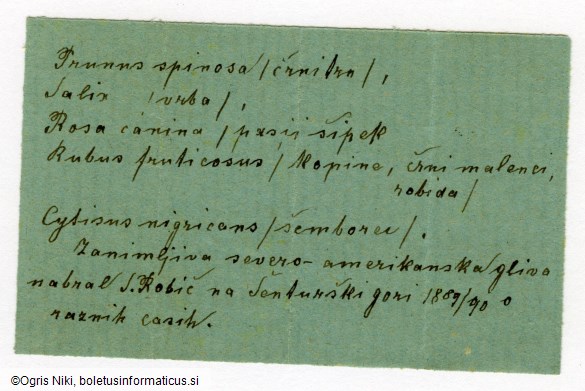 Prunus spinosa / črni trn /,
Salix / vrba /,
Rosa canina / pasji šipek
Rubus fruticosus / Kopine, črni malenci,
robida /
Cytisus nigricans / šemborec /.
Zanimljiva severo-amerikanska gliva
nabral S. Robič na Šenturški gori 1889/90 o
raznih časih.
©Ogris Niki, boletusinformaticus.si